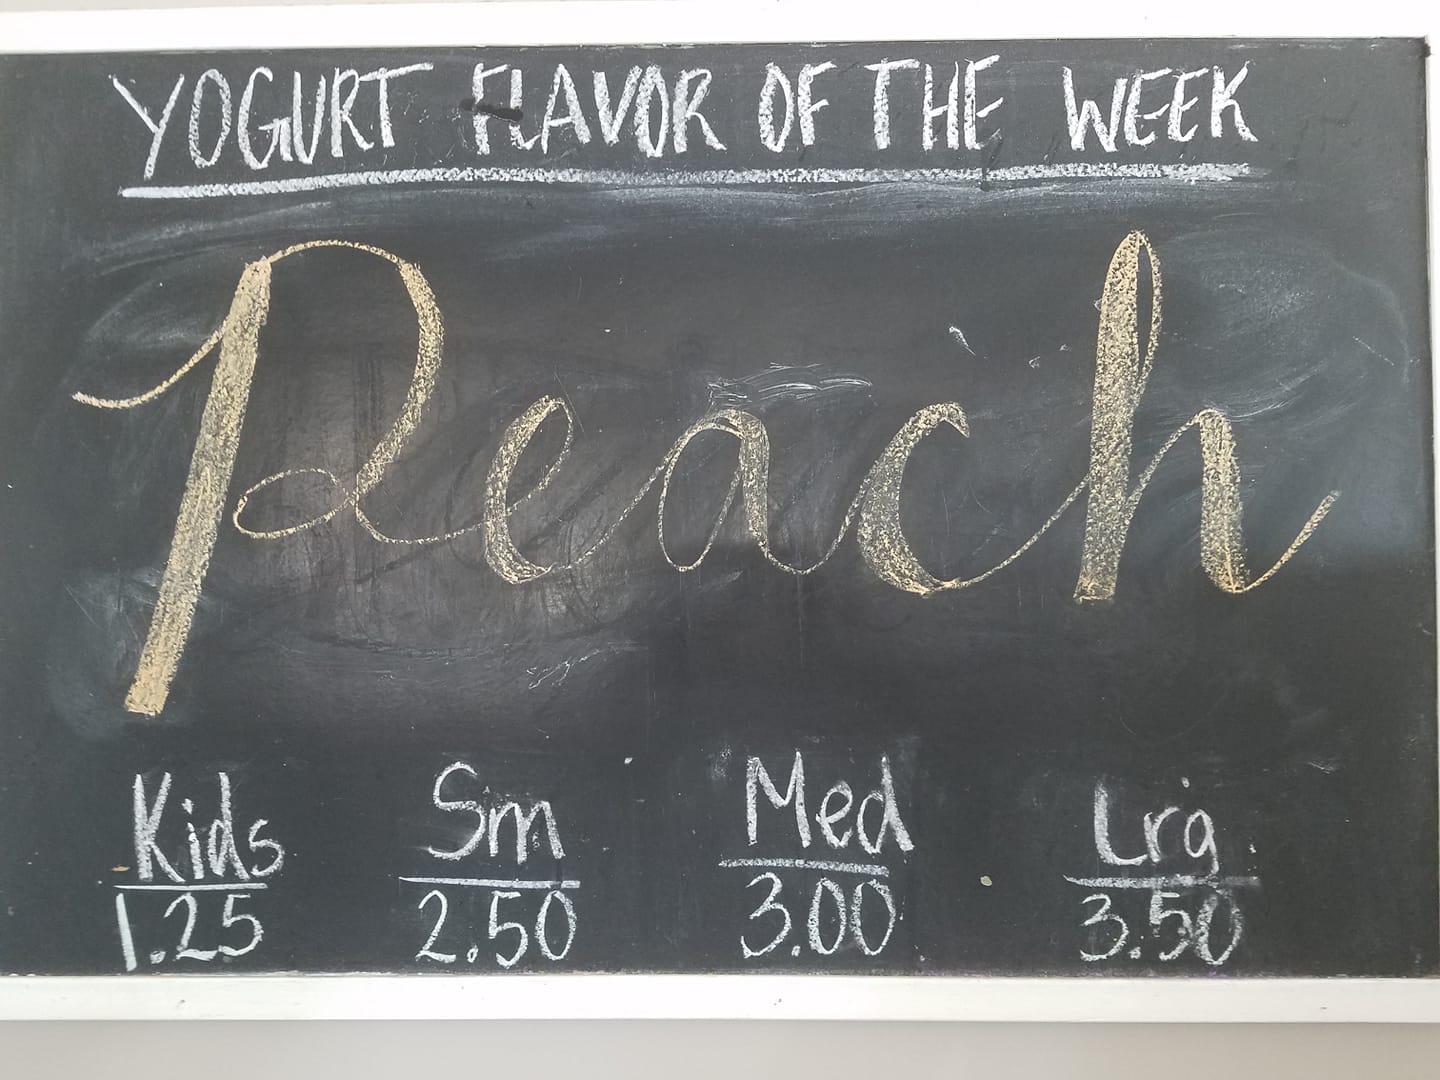 YOGURT FLAVOR OF THE WEEK
Peach
Kids Sm Med Lrg
1.25 2.50 3.00 3.50